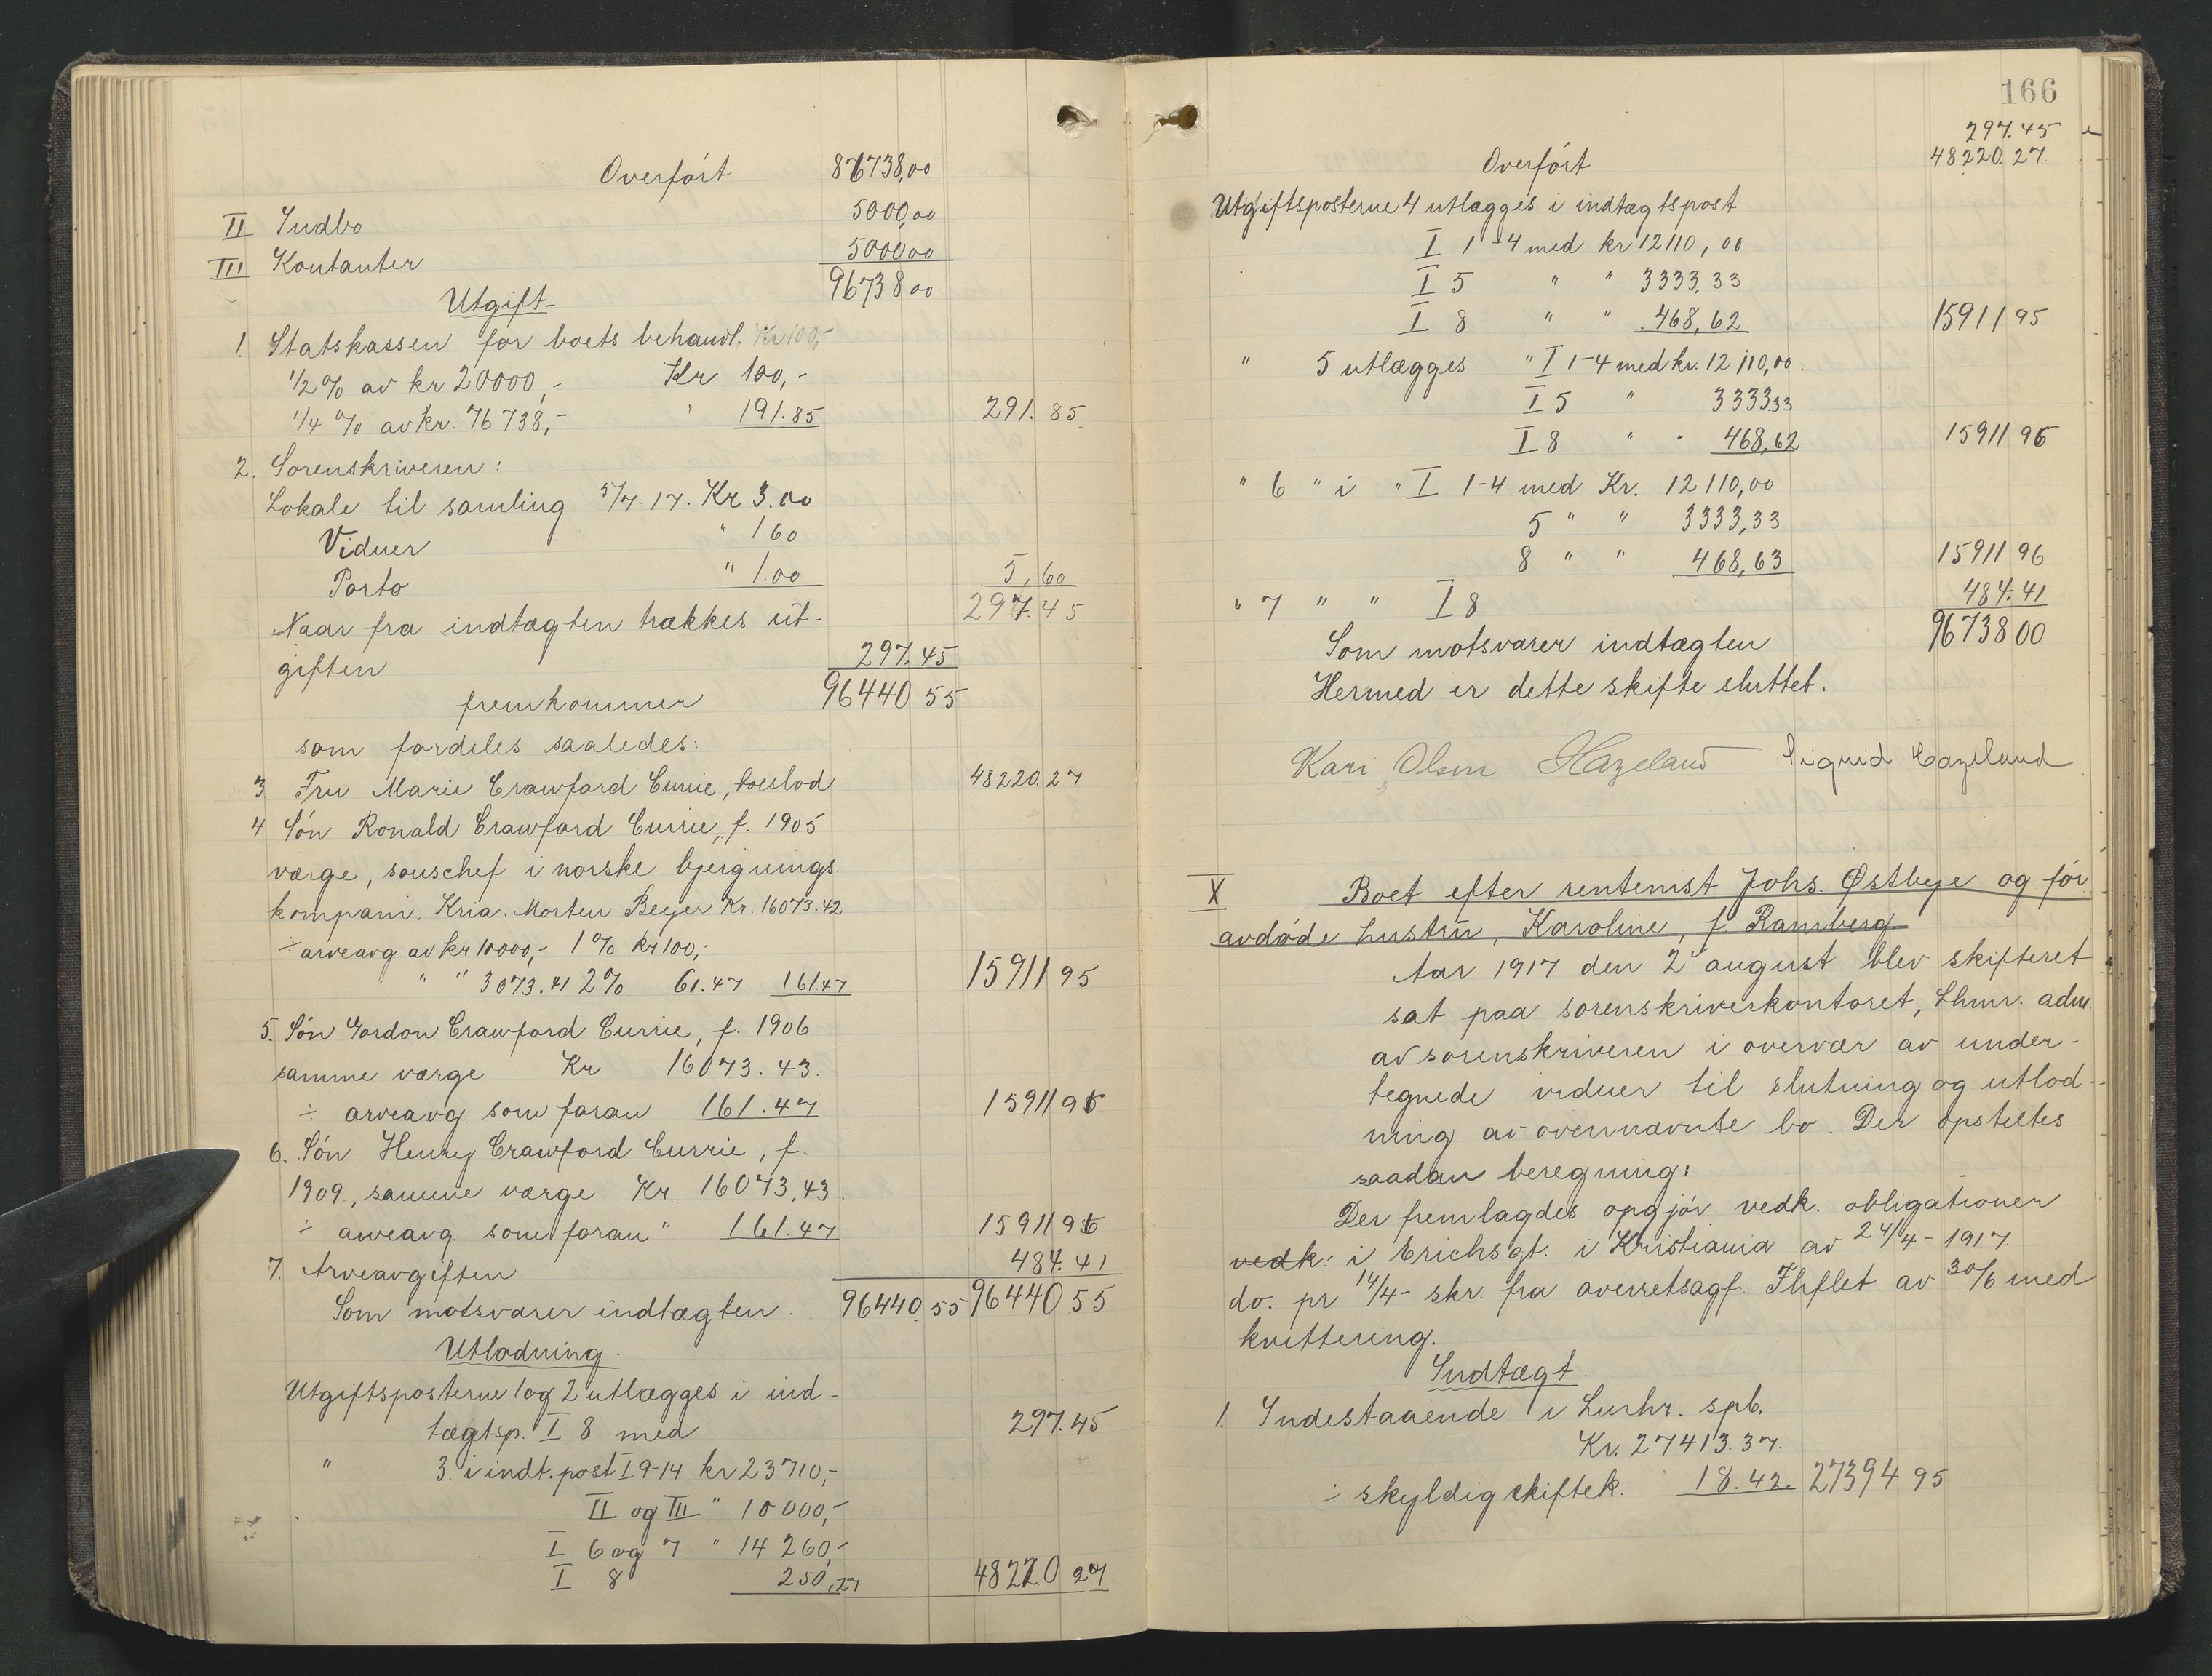 Overført 86738,00
II Indbo 5000,00
III Kontanter 5000 00
96738 00
Utgift
1. Statskassen for boets behandl. Kr 100,-
1/2 % av kr 20000,- Kr 100,-
1/4 % av kr. 76738,- " 191.85 291.85
2. Sorenskriveren:
Lokale til samling 5/7.17. Kr 3.00
Vidner " 1 60
Porto " 1.00 5,60
Naar fra indtægten trækkes ut- 297.45
giften 297.45
fremkommer 96440 55
som fordeles saaledes:
3 Fru Marie Crawford Currie, boeslod 48220.27
4 Søn Ronald Crawford Currie, f. 1905
værge, souschef i norske bjergnings-
kompani, Kria. Morten Beyer Kr. 16073.42
÷ arveavg. av kr 10000,- 1 % kr 100,-
" " 3073.41 2% 61.47 161.47 15911 95
5. Søn Gordon Crawford Currie, f. 1906
samme værge Kr 16073.43.
÷ arveavg. som foran 161.47 15911 96
6. Søn Henry Crawford Currie, f.
1909, samme værge Kr. 16073,43.
÷ arveavg. som foran " 161.47 15911 96
7. Arveavgiften 484.41
Som motsvarer indtægten. 96440.55 96440 55
Utlodning.
Utgiftsposterne 1 og 2 utlægges i ind-
tægtsp. I 8 med 297.45
" 3 i indt. post I 9-14 kr 23710,-
II og III " 10000,-
I 6 og 7 " 14260,-
I 8 250,27 48220 27
166
297.45
Overført 48220.27
Utgiftsposterne 4 utlægges i indtægtspost
I 1-4 med kr 12110,00
I 5 " " 3333.33
I 8 " " 468,62 15911 95
" 5 utlægges " I 1-4 med kr. 12110,00
I 5 " 3333.33
I 8 " " 468,62 15911 95
" 6 " i " I 1-4 med Kr. 12110,00
5 " " 3333,33
8 " " 468,63 15911 96
" 7 " " I 8 484.41
Som motsvarer indtægten 96738 00
Hermed er dette skifte sluttet.
Kari Olsen Hazeland Sigrid Hazeland
X Boet efter rentenist Johs. Østbye og før
avdøde hustru, Karoline, f. Ramberg
Aar 1917 den 2 august blev skifteret
sat paa sorenskriverkontoret, Lhmr. adm.
av sorenskriveren i overvær av under-
tegnede vidner til slutning og utlod-
ning av ovennævnte bo. Der opstiltes
saadan beregning:
Der fremlagdes opgjør vedk. obligationer
vedk: i Erichsgt. i Kristiania av 24/4 - 1917
do. pr 14/4 - skr. fra overretsagf. Fliflet av 30/6 med
kvittering.
Indtægt.
1. Indestaaende i Lmhr. spb.
Kr. 27413.37.
÷ skyldig skiftek. 18.42. 27394 95